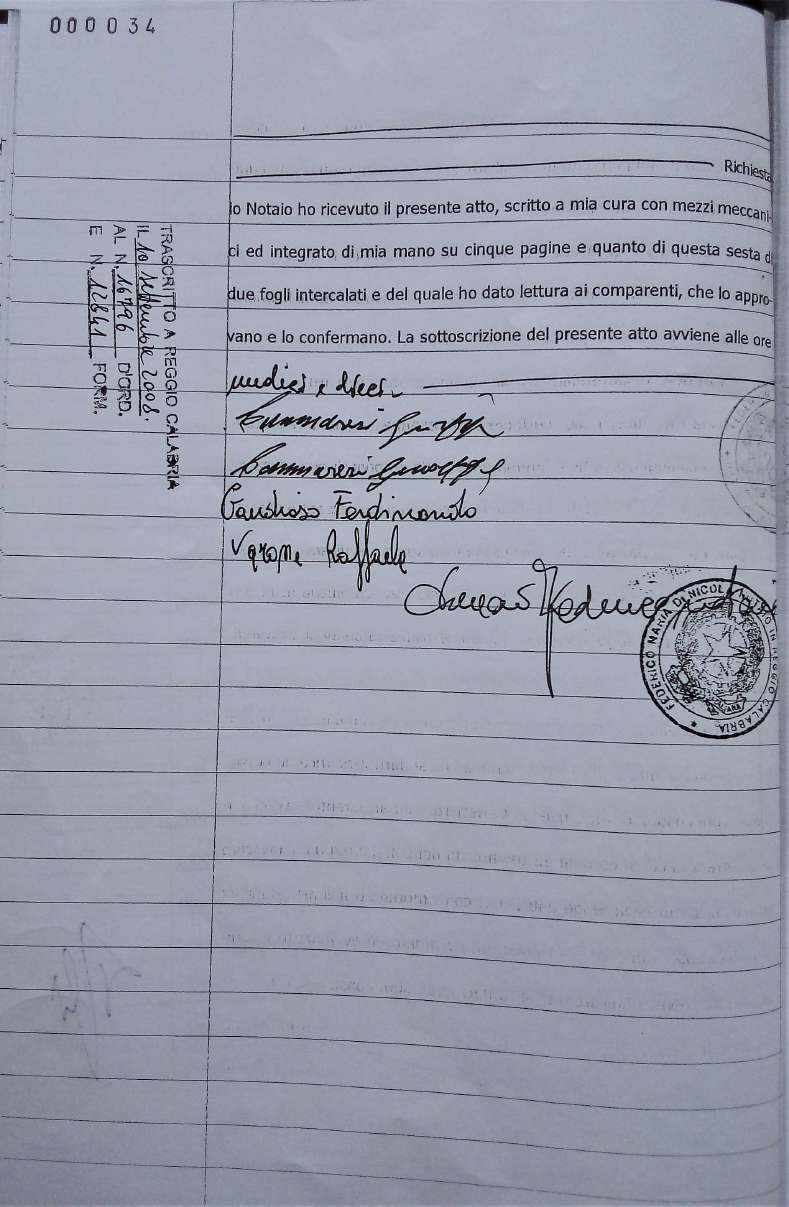 000034
Richiesta
Io Notaio ho ricevuto il presente atto, scritto a mia cura con mezzi meccani-
ci ed integrato di mia mano su cinque pagine e quanto di questa sesta d
due fogli intercalati e del quale ho dato lettura ai comparenti, che lo appro-
vano e lo confermano. La sottoscrizione del presente atto avviene alle ore
undici e dieci
Gaudioso Ferdinando
Verone Raffaele
TRASCRITTO A REGGIO CALABRIA
IL 10 settembre 2008.
AL N. 16796 D'ORD.
E N. 12841 FORM.
FEDERICO MARIA DI NICOLA IN REGGIO CALABRIA